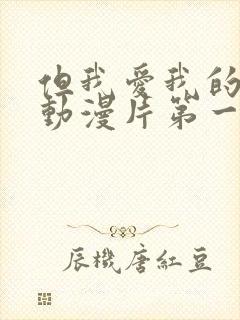 但我愛我的
動漫片第一
辰機唐紅豆